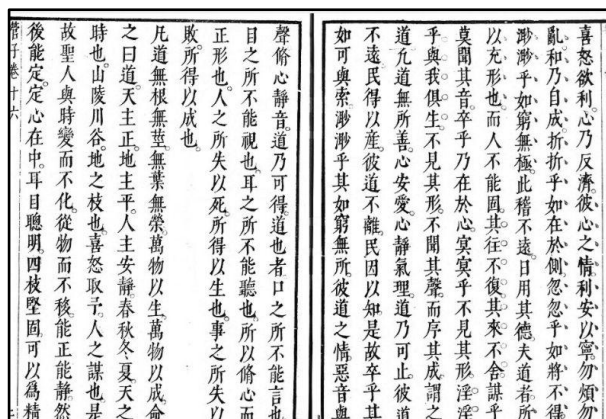 喜怒欲利心乃反濟彼心之情利安以寧勿煩勿
亂和乃自成折折乎如在於側忽忽乎如將不得
渺渺乎如窮無極此稽不遠日用其德夫道者所
以充形也而人不能固其往不復其來不舍謀乎
莫聞其音卒乎乃在於心冥冥乎不見其形淫淫
乎與我俱生不見其形不聞其聲而序其成謂之
道凡道無所善心安愛心靜氣理道乃可止彼道
不遠民得以產彼道不離民因以知是故卒乎其
如可與索渺渺乎其如窮無所彼道之情惡音與
聲脩心靜音道乃可得道也者口之所不能言也
目之所不能視也耳之所不能聽也所以脩心而
正形也人之所失以死所得以生也事之所失以
敗所得以成也
凡道無根無莖無葉無榮萬物以生萬物以成命
之曰道天主正地主平人主安靜春秋冬夏天之
時也山陵川谷地之枝也喜怒取予人之謀也是
故聖人與時變而不化從物而不移能正能靜然
後能定定心在中耳目聰明四枝堅固可以爲精
管子卷十六